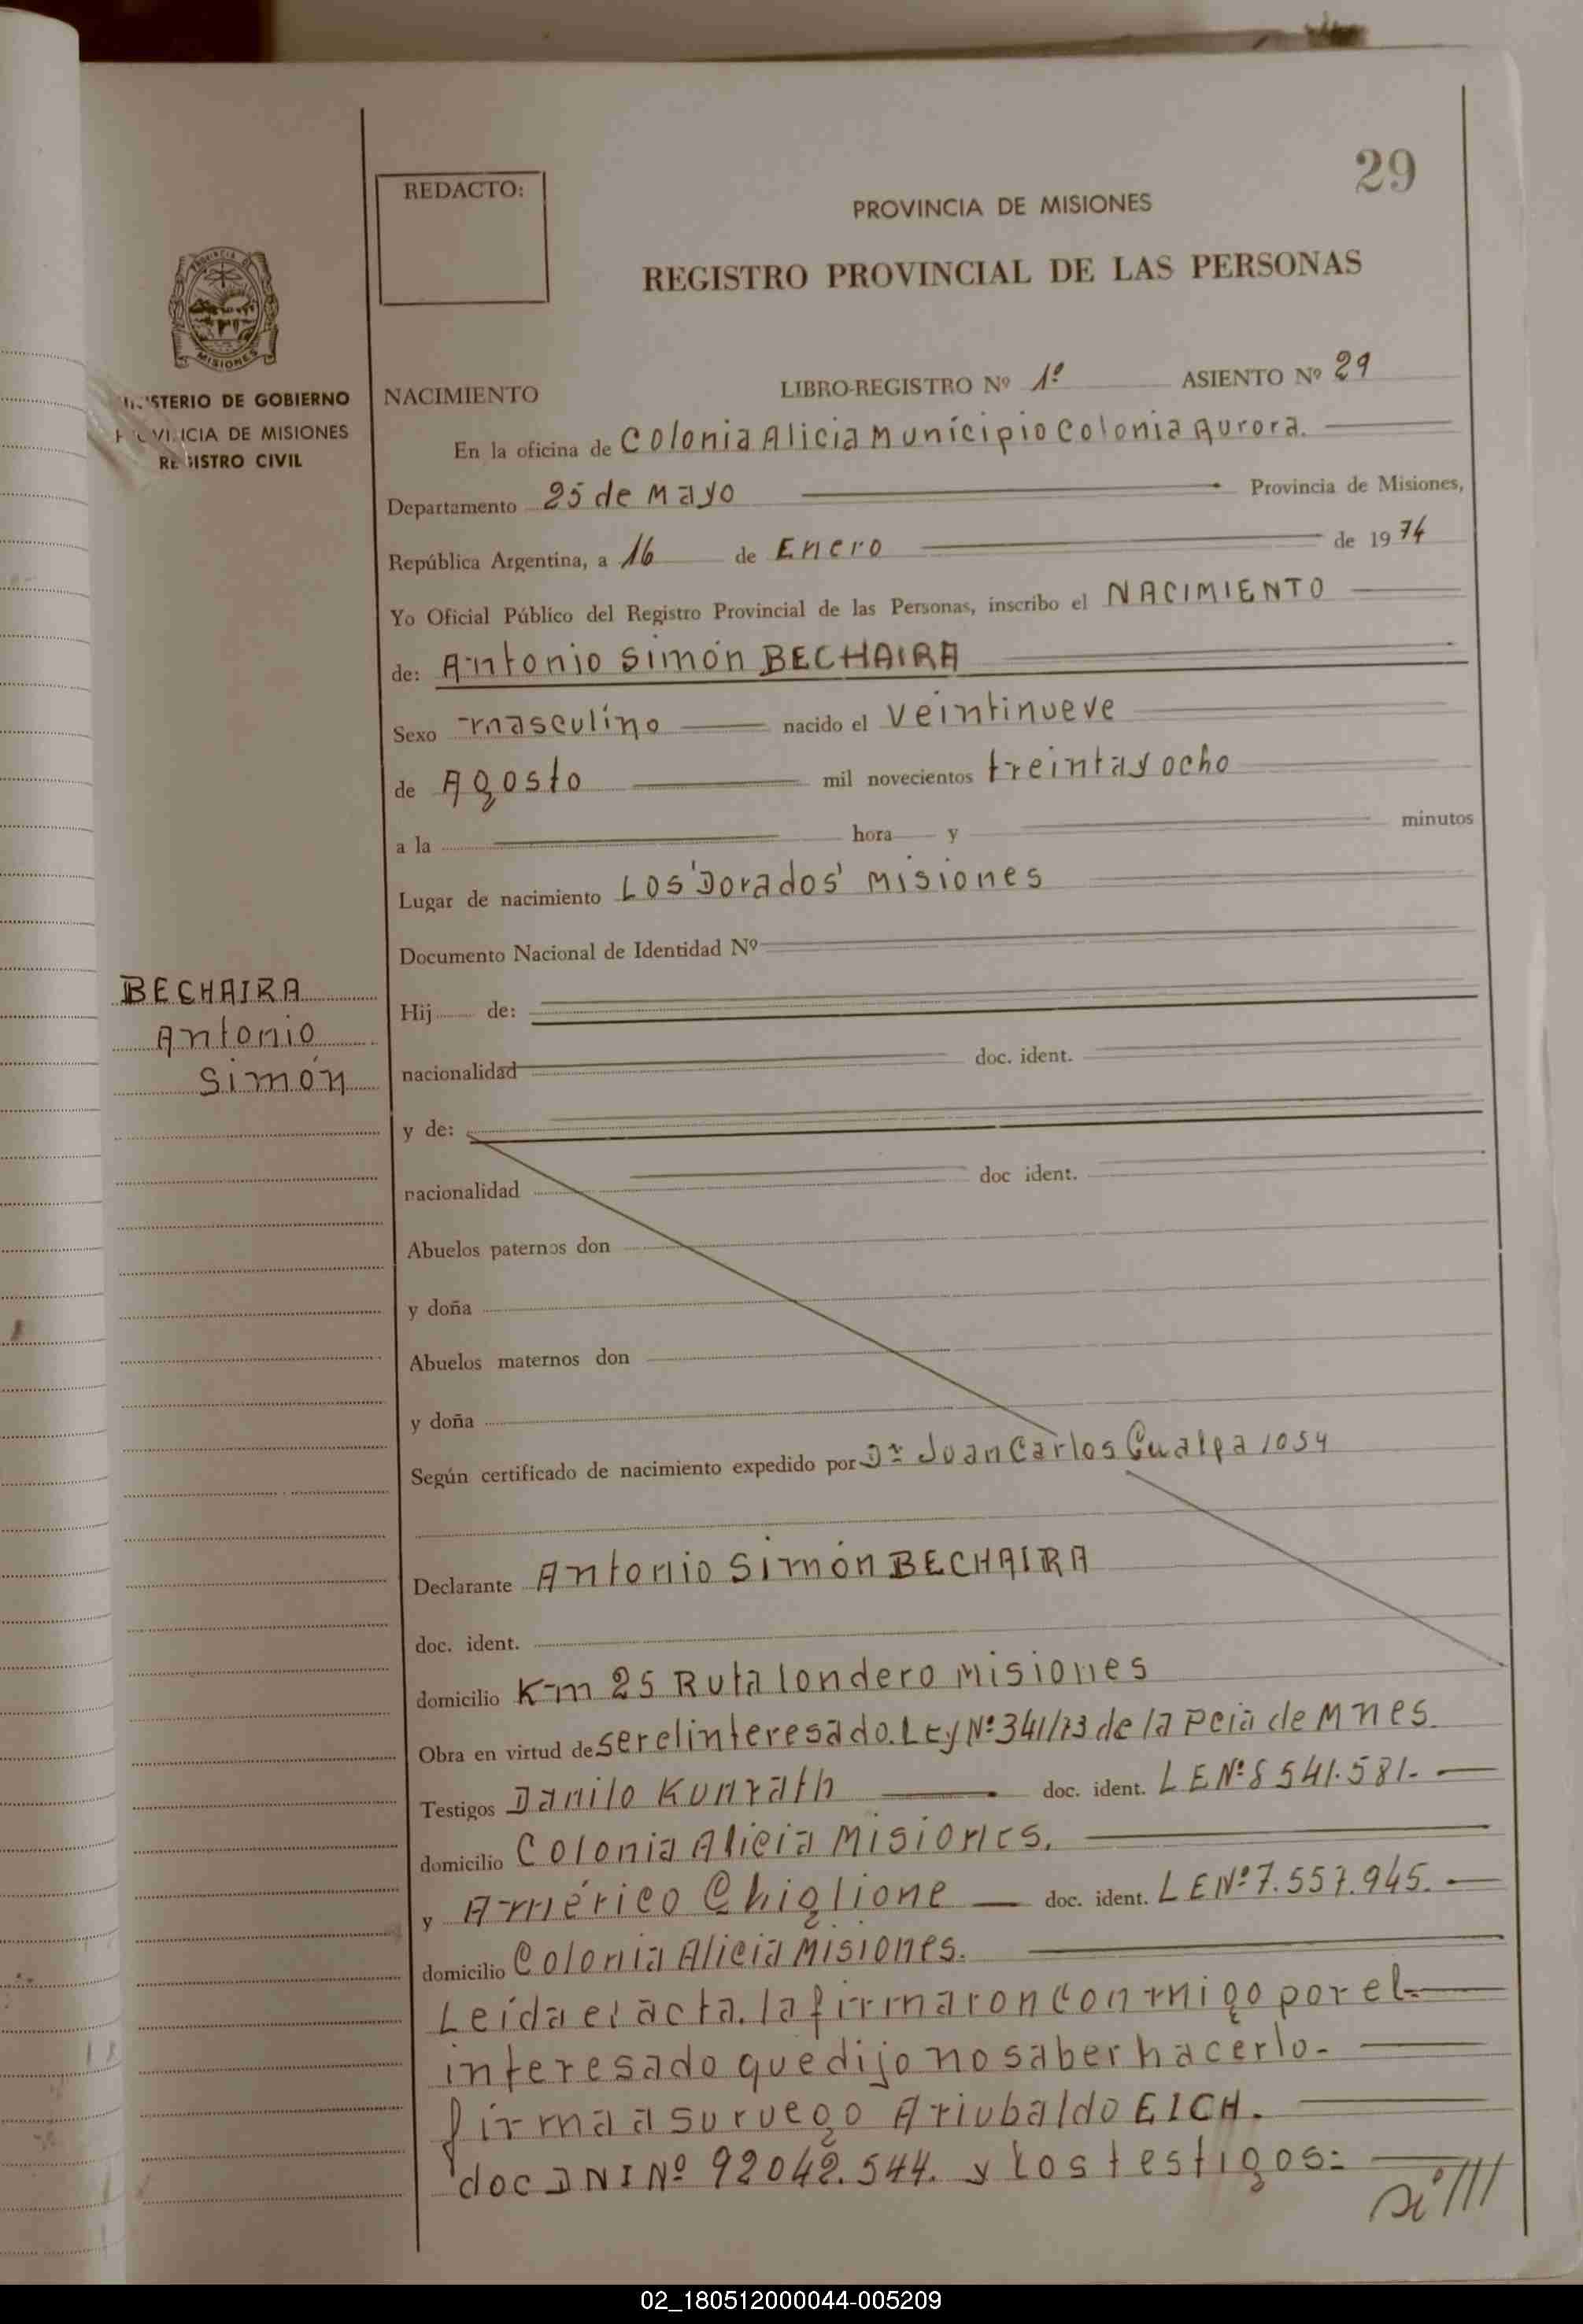 29
REDACTO:
PROVINCIA DE MISIONES
REGISTRO PROVINCIAL DE LAS PERSONAS
MISIONES
MINISTERIO DE GOBIERNO
PROVINCIA DE MISIONES
REGISTRO CIVIL
NACIMIENTO LIBRO-REGISTRO Nº 1º ASIENTO Nº 29
En la oficina de Colonia Alicia Munícipio Colonia Aurora.
Departamento 25 de Mayo Provincia de Misiones,
República Argentina, a 16 de Enero de 1974
Yo Oficial Público del Registro Provincial de las Personas, inscribo el NACIMIENTO
de: Antonio Simón BECHAIRA
Sexo masculino nacido el Veintinueve
de Agosto mil novecientos treinta y ocho
a la hora y minutos
Lugar de nacimiento Los 'Dorados' Misiones
Documento Nacional de Identidad Nº
BECHAIRA
Antonio
Simón
Hij de:
nacionalidad doc. ident.
y de:
nacionalidad doc ident.
Abuelos paternos don
y doña
Abuelos maternos don
y doña
Según certificado de nacimiento expedido por Dr Juan Carlos Gualpa 1054
Declarante Antonio Simón BECHAIRA
doc. ident.
domicilio Km 25 Ruta londero Misiones
Obra en virtud de ser el interesado. Ley Nº 341/73 de la Pcia de Mnes.
Testigos Danilo Kunrath doc. ident. L E Nº 8 541.581.
domicilio Colonia Alicia Misiones.
y Américo Ghiglione doc. ident. L E Nº 7.557.945.
domicilio Colonia Alicia Misiones.
Leída el acta. la firmaron conmigo por el
interesado que dijo no saber hacerlo.
firma a su ruego Ariubaldo EICH.
doc DNI Nº 92042.544. y los testigos:
02_180512000044-005209